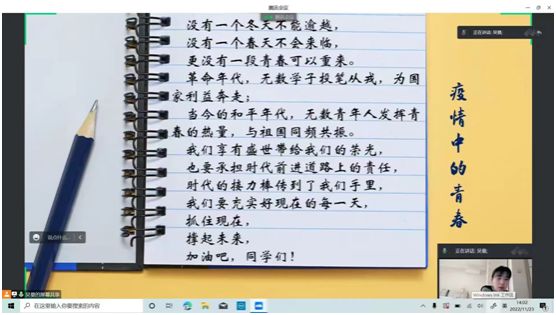 腾讯会议
没有一个冬天不能逾越，
没有一个春天不会来临，
更没有一段青春可以重来。
革命年代，无数学子投笔从戎，为国
家利益奔走；
当今的和平年代，无数青年人发挥青
春的热量，与祖国同频共振。
我们享有盛世带给我们的荣光，
也要承担时代前进道路上的责任，
时代的接力棒传到了我们手里，
我们要充实好现在的每一天，
抓住现在，
撑起未来，
加油吧，同学们！
疫情中的青春
正在讲话:
说点什么...
正在讲话:
的屏幕共享
Windows Ink 工作区
在这里输入你要搜索的内容
英
14:02
2022/11/23